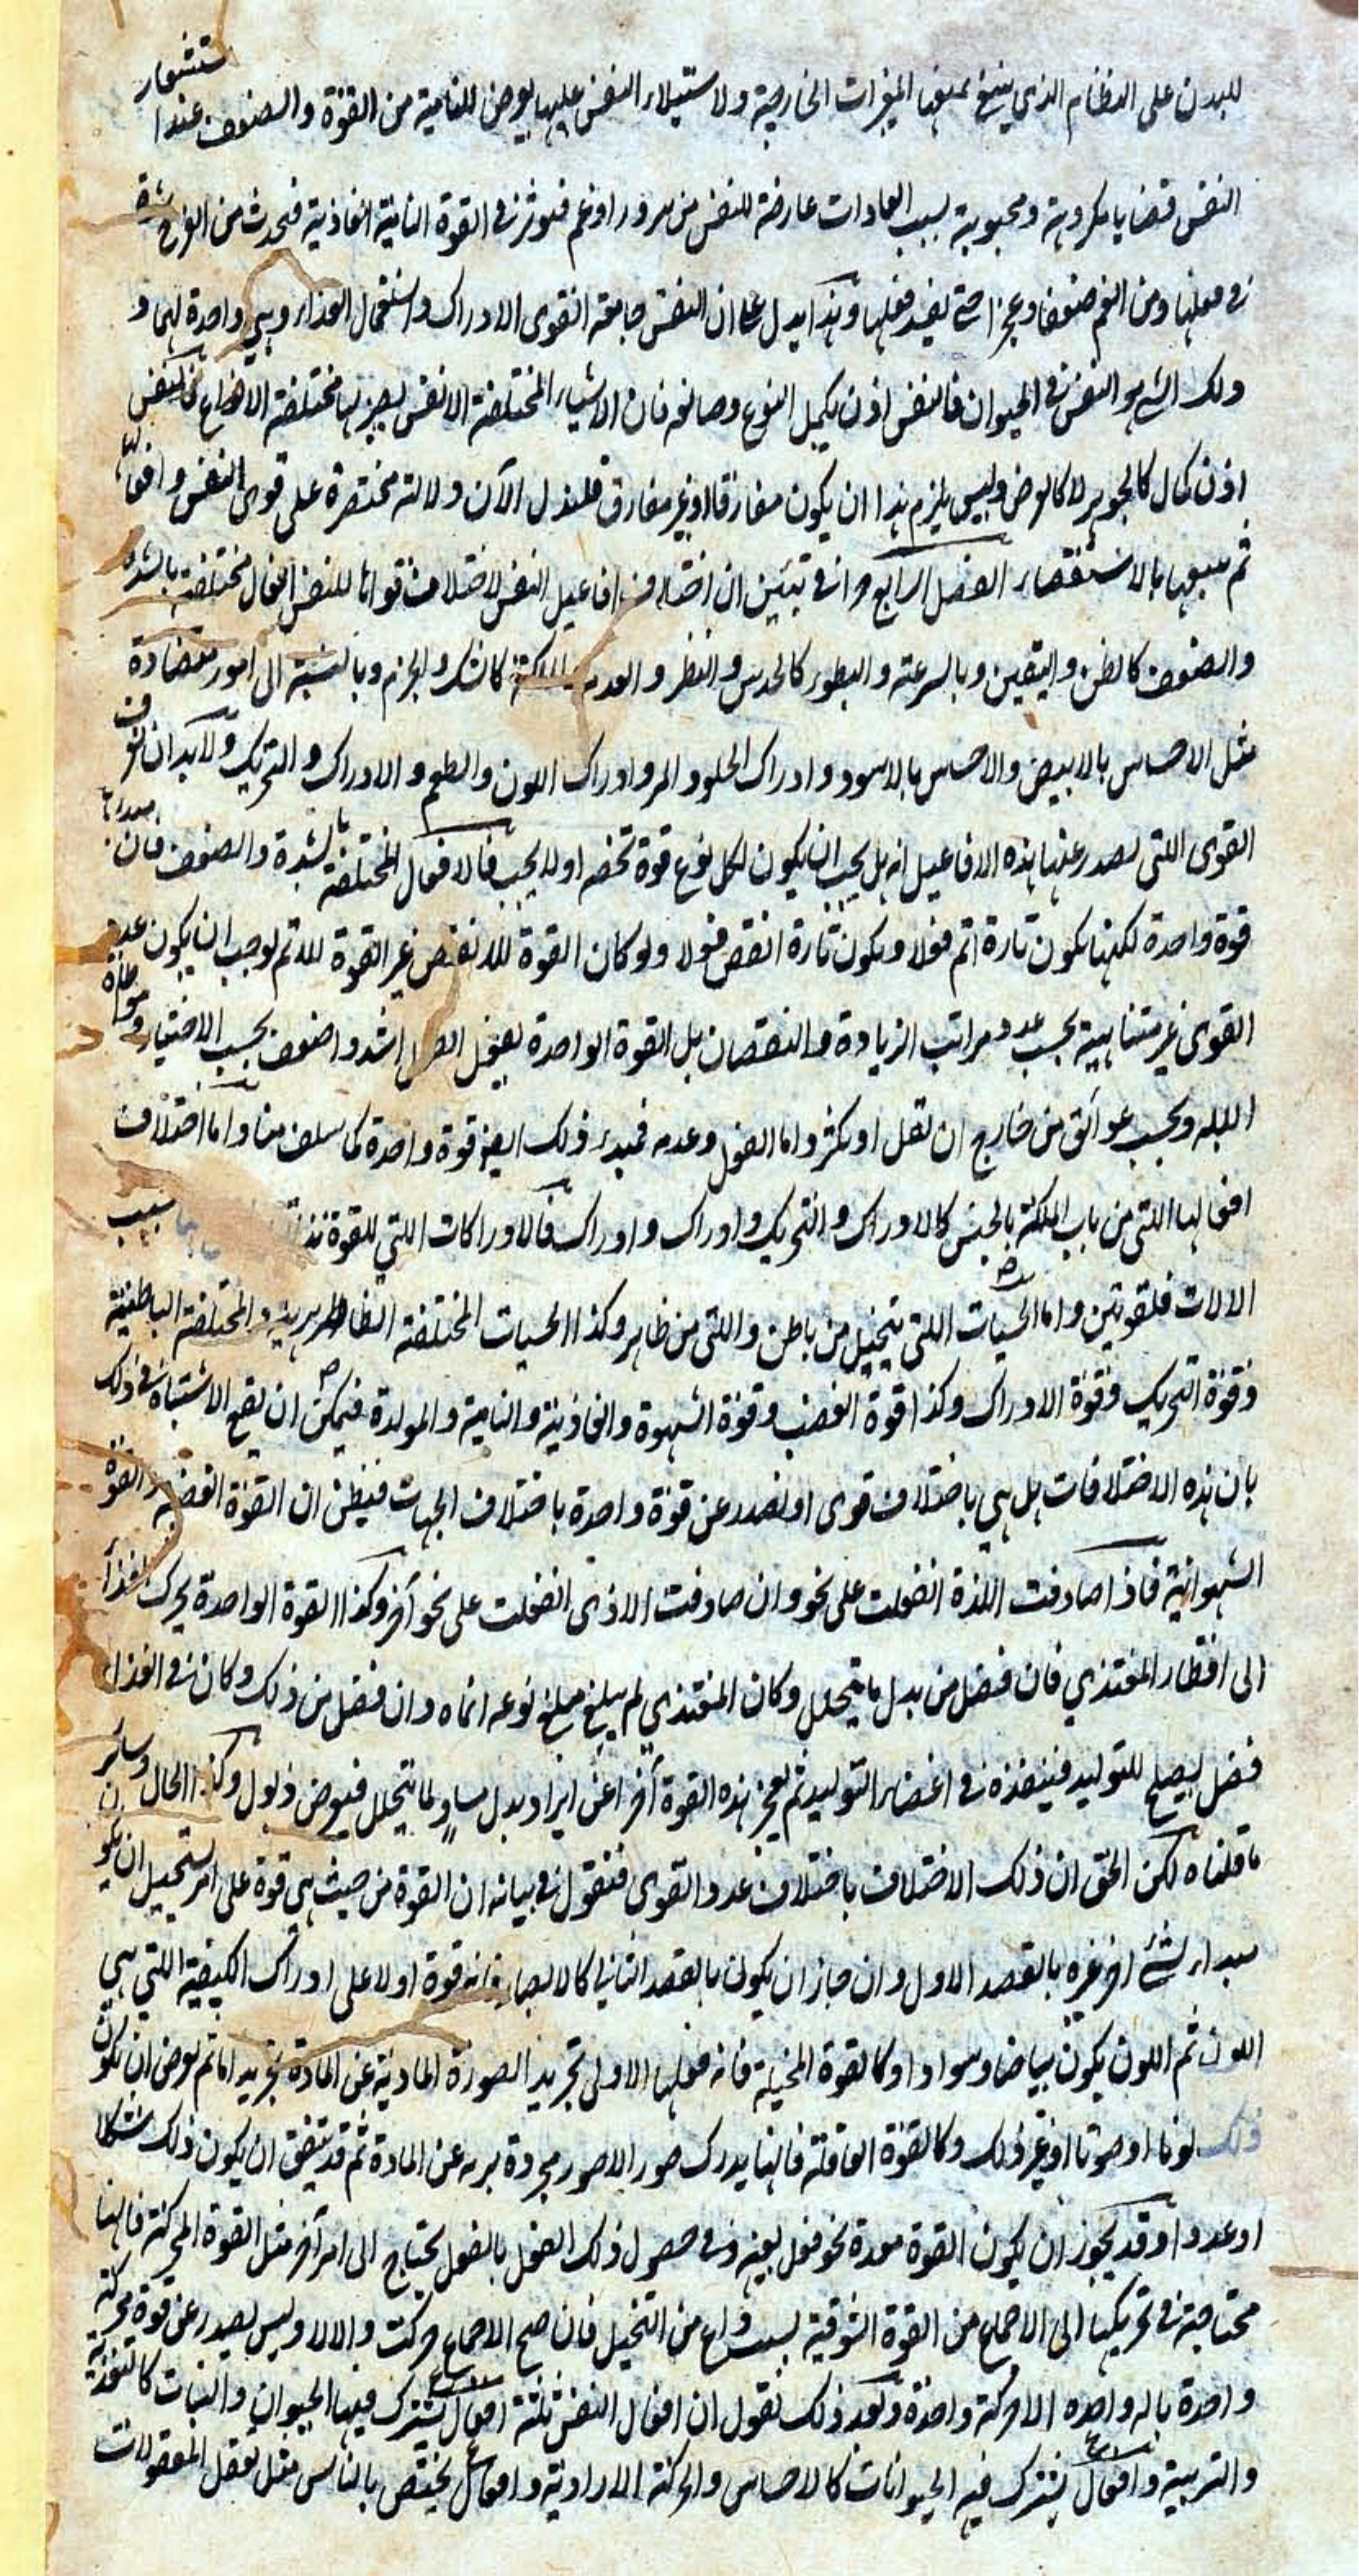 للبدن على النظام الذي ينبغ تميتها المغيرات الخارجية ولاستيلاء النفس عليها يعرض للنامية من القوة والضعف عند استشعار
النفس قضايا مكروهة ومحبوبة بسبب العادات عارضة للنفس من سرور او غم فتوثر في القوة النامية الغاذية فتحدث من الفرح شدة
في فعلها ومن الغم ضعفا وعجزا حتى يفسد فعلها وهذا يدل على ان النفس جامعة القوى الادراك واستعمال الغذاء وهي واحدة لهما و
ذلك الشي هو النفس في الحيوان فالنفس اذن يكمل النوع وصانعه فان الاشياء المختلفة الانفس يصير بها مختلفة الانواع فالنفس
اذن كمال كالجوهر لا كالعرض وليس يلزم هذا ان يكون مفارقا او غير مفارق فلندل الآن دلالة مختصرة على قوى النفس وافعالها
ثم نتبعها بالاستقصاء الفصل الرابع من في تبيين ان اختلاف افاعيل النفس لاختلاف قواها للنفس افعال مختلفة بالشدة
والضعف كالظن واليقين وبالسرعة والبطوء كالحدس والنظر والعدم والملكة كالشك والجزم وبالنسبة الى امور متضادة
مثل الاحساس بالابيض والاحساس بالاسود وادراك الحلو والمر وادراك اللون والطعم والادراك والتحريك ولابد ان نعرف
القوى اللتي يصدر عنها هذه الافاعيل انه هل يجب ان يكون لكل نوع قوة تخصه اولا يجب فالافعال المختلفة بالشدة والضعف فان مبدءها
قوة واحدة لكنها يكون تارة اتم فعلا ويكون تارة انقص فعلا ولو كان القوة للانقص غير القوة للاتم لوجب ان يكون عدد
القوى غير متناهية بحسب عدد مراتب الزيادة والنقصان بل القوة الواحدة يفعل الفعل اشد واضعف بحسب الاختيار ومواطاة
الاله وبحسب عوائق من خارج ان تقل او تكثر واما الفعل وعدمه فمبدء ذلك ايضا قوة واحدة كما سلف منا واما اختلاف
افعالها اللتي من باب الملكة بالجنس كالادراك والتحريك وادراك وادراك فالادراكات اللتي للقوة بسبب
الالات فلقوتين واما الحسيات اللتي يتخيل من باطن واللتي من ظاهر وكذا الحسيات المختلفة الظاهرية والمختلفة الباطنية
وقوة التحريك وقوة الادراك وكذا قوة الغضب وقوة الشهوة والغاذية والنامية والمولدة فيمكن ان يقع الاشتباه في ذلك
بان هذه الاختلافات هل هي باختلاف قوى او تصدر عن قوة واحدة باختلاف الجهات فيظن ان القوة الغضبية القوة
الشهوانية فاذا صادفت اللذة انفعلت على نحو وان صادفت الاذى انفعلت على نحو آخر وكذا القوة الواحدة يحرك الغذآ
الى اقطار المغتذي فان فضل من بدل ما يتحلل وكان المغتذي لم يبلغ مبلغ نوعه انماه وان فضل من ذلك وكان في الغذاء
فضل ليصلح للتوليد فينفذه في اعضاء التوليد ثم يعجز هذه القوة آخرا عن ايراد بدل مساو لما يتحلل فيعرض ذبول وكذا الحال وسائر
ما قلناه لكن الحق ان ذلك الاختلاف باختلاف عدد القوى فنقول في بيانه ان القوة من حيث هي قوة على امر يستحيل ان يكون
مبداء لشئ اخر غيره بالقصد الاول وان جاز ان يكون بالقصد الثاني كالابصار فانه قوة اولا على ادراك الكيفية اللتي هي
اللون ثم اللون يكون بياضا وسوادا وكالقوة المخيلة فانه فعلها الاولى تجريد الصورة المادية عن المادة تجريدا ما ثم يعرض ان يكون
ذلك لونا او صوتا او غير ذلك وكالقوة العاقلة فانها يدرك صور الامور مجردة برية عن المادة ثم قد يتفق ان يكون ذلك شكلا
او عددا وقد يجوز ان يكون القوة معدة نحو فعل بعينه وفي حصول ذلك الفعل بالفعل يحتاج الى امر آخر مثل القوة المحركة فانها
محتاجة في تحريكها الى الاجماع من القوة الشوقية بسبب داع من التخيل فان صح الاجماع حركت والا لا وليس يصدر عن قوة محركة
واحدة باله واحده الا حركة واحدة وبعد ذلك نقول ان افعال النفس ثلثة افعال يشترك فيها الحيوان والنبات كالتغذية
والتربية وافعال يشترك فيه الحيوانات كالاحساس والحركة الارادية وافعال يختص بالناس مثل تعقل المعقولات